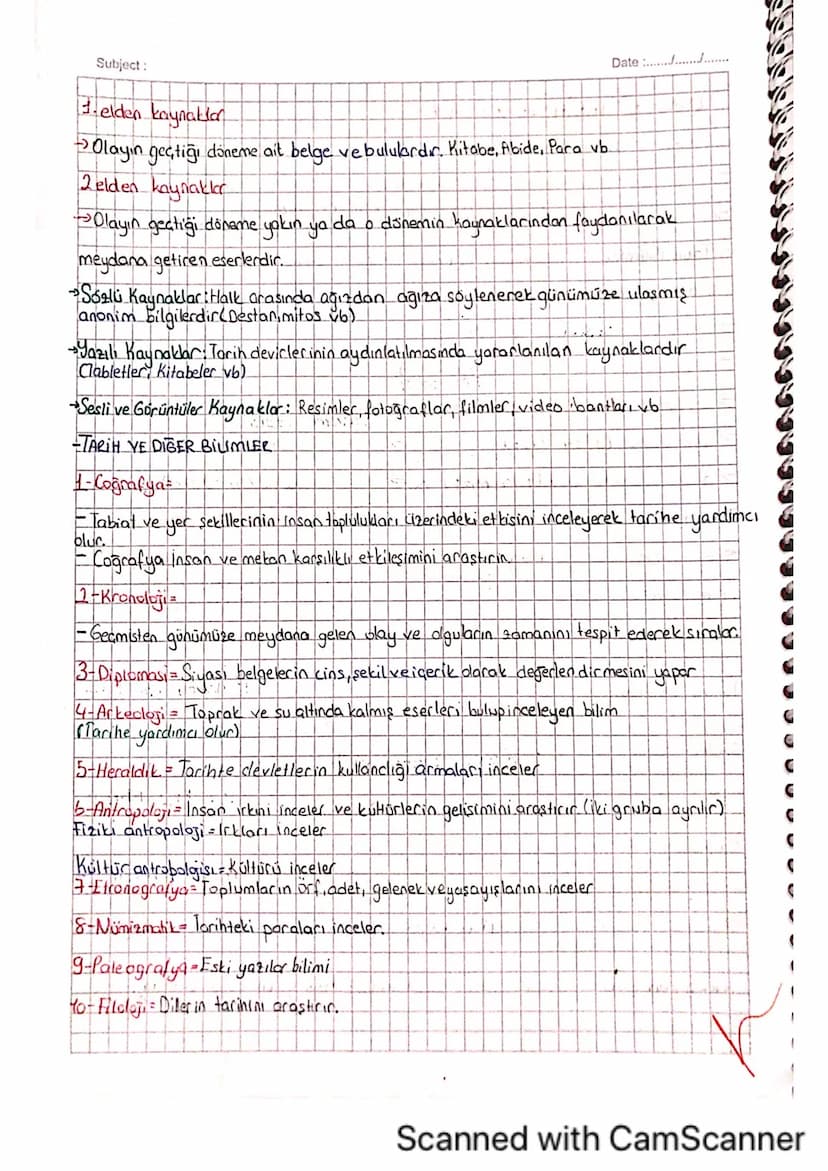 Subject :
Date :....../......./.......
1. elden kaynaklar
→Olayın geçtiği döneme ait belge ve bululardır. Kitabe, Abide, Para vb
2 elden kaynaklar
→Olayın geçtiği döneme yakın ya da o dönemin kaynaklarından faydanılarak
meydana getiren eserlerdir.
→Sözlü Kaynaklar: Halk arasında ağızdan ağıza söylenerek günümüze ulasmış
anonim bilgilerdir(Destan,mitos vb)
→Yazılı Kaynaklar: Tarih devirlerinin aydınlatılmasında yararlanılan kaynaklardır
(Tabletler, Kitabeler vb)
→Sesli ve Görüntüler Kaynaklar: Resimler, fotoğraflar, filmler, video bantları vb
-TARİH VE DİĞER BİLİMLER
1-Coğrafya=
- Tabiat ve yer şekillerinin insan toplulukları üzerindeki etkisini inceleyerek tarihe yardımcı
olur.
- Coğrafya insan ve mekan karsılıklı etkileşimini arastırın.
2-Kronoloji=
-Geçmisten günümüze meydana gelen olay ve olguların zamanını tespit ederek sıralar.
3-Diplomasi=Siyası belgelerin cins, sekil ve içerik olarak değerlendirmesini yapar
4-Arkeoloji= Toprak ve su altında kalmış eserleri bulup inceleyen bilim
(Tarihe yardımcı olur)
5-Heraldik= Tarihte devletlerin kullandığı armaları inceler
6-Antropoloji= İnsan ırkını inceler ve kültürlerin gelisimini arastırır (iki gruba ayrılır)
Fiziki antropoloji= Irkları inceler
Kültür antrobolojisi= Kültürü inceler
7-Etnonografya= Toplumların örf, adet, gelenek ve yaşayışlarını inceler
8-Nümizmatik= Tarihteki paraları inceler.
9-Paleografya=Eski yazılar bilimi
10-Filoloji= Dilerin tarihini araştırır.
Scanned with CamScanner